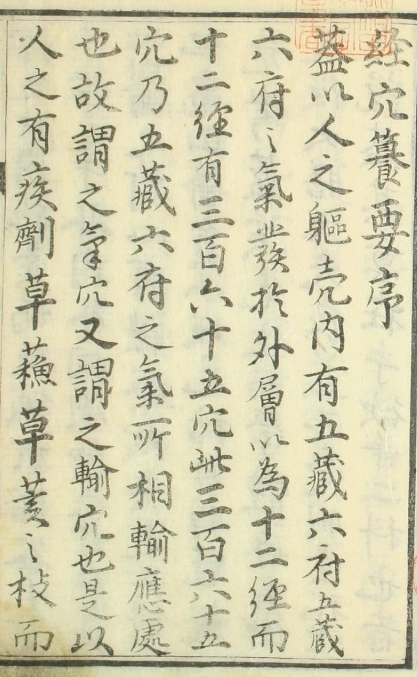 経穴籑要序
蓋以人之軀壳内有五蔵六府五蔵
六府之氣並發於外層以為十二経而
十二経有三百六十五穴此三百六十五
穴乃五蔵六府之氣所相輸應處
也故謂之氣穴又謂之輸穴也是以
人之有疾劑草蘓草荄之枝而